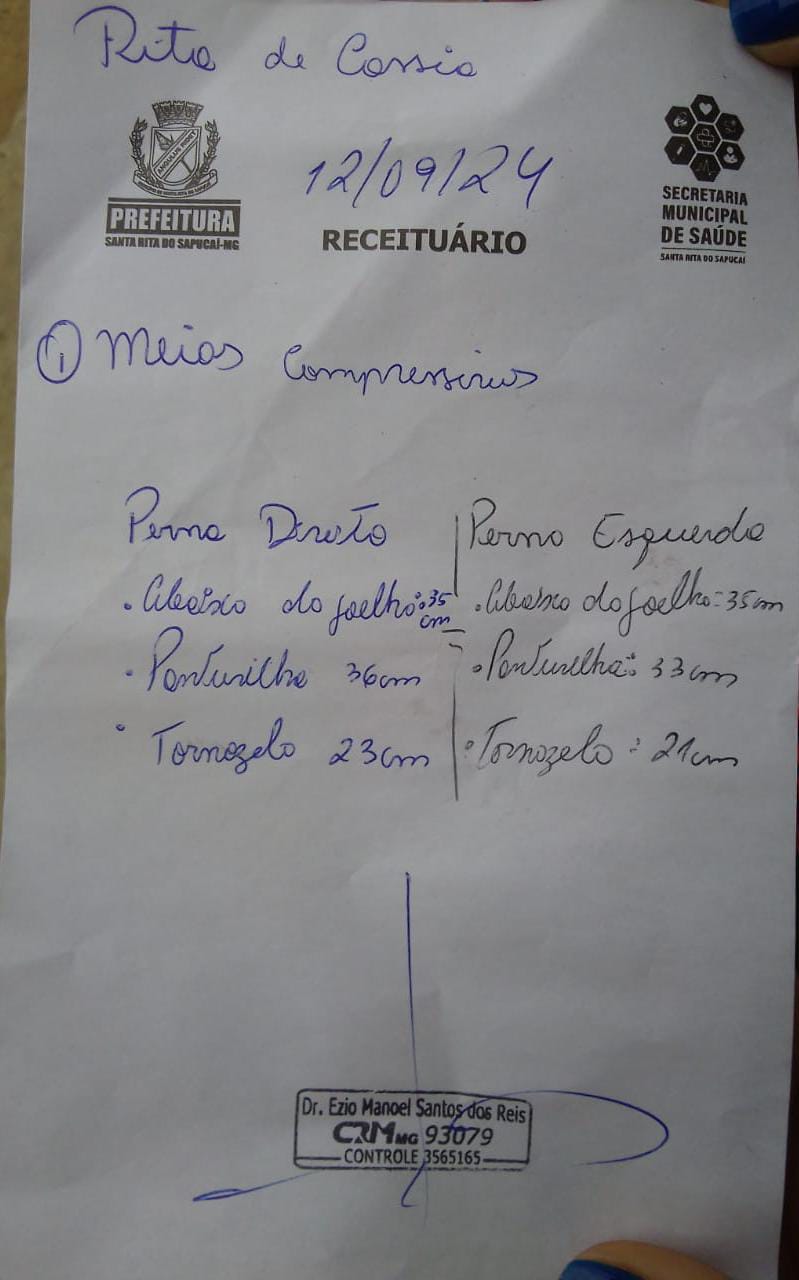 Rita de Cassia
12/09/24
PREFEITURA
SANTA RITA DO SAPUCAÍ-MG
RECEITUÁRIO
SECRETARIA
MUNICIPAL
DE SAÚDE
SANTA RITA DO SAPUCAÍ
1 Meias Compressivas
Perna Direita
• Abaixo do joelho: 35 cm
• Panturilha 36cm
• Tornozelo 23cm
Perna Esquerda
• Abaixo do joelho: 35cm
• Panturilha: 33cm
• Tornozelo: 21cm
Dr. Ezio Manoel Santos dos Reis
CRM MG 93079
CONTROLE 3565165